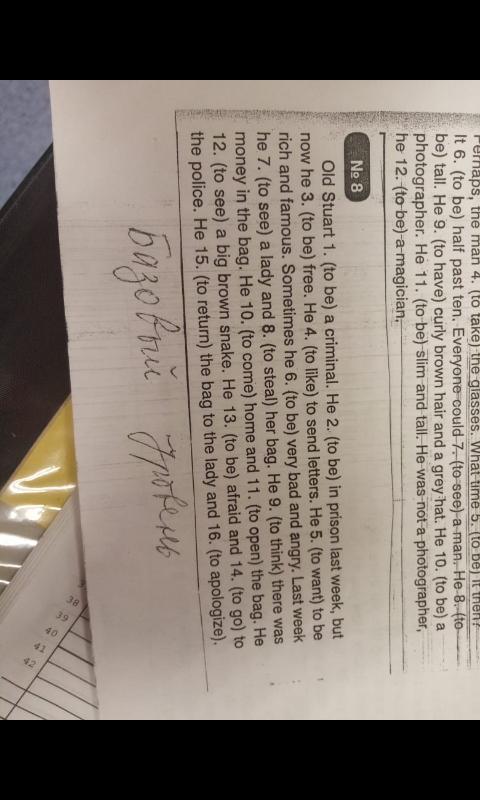 Perhaps, the man 4. (to take) the glasses. What time 5. (to be) it then?
it 6. (to be) half past ten. Everyone could 7. (to see) a man. He 8. (to
be) tall. He 9. (to have) curly brown hair and a grey hat. He 10. (to be) a
photographer. He 11. (to be) slim and tall. He was not a photographer,
he 12. (to be) a magician.
№ 8
Old Stuart 1. (to be) a criminal. He 2. (to be) in prison last week, but
now he 3. (to be) free. He 4. (to like) to send letters. He 5. (to want) to be
rich and famous. Sometimes he 6. (to be) very bad and angry. Last week
he 7. (to see) a lady and 8. (to steal) her bag. He 9. (to think) there was
money in the bag. He 10. (to come) home and 11. (to open) the bag. He
12. (to see) a big brown snake. He 13. (to be) afraid and 14. (to go) to
the police. He 15. (to return) the bag to the lady and 16. (to apologize).
Базовый уровень
38
39
40
41
42